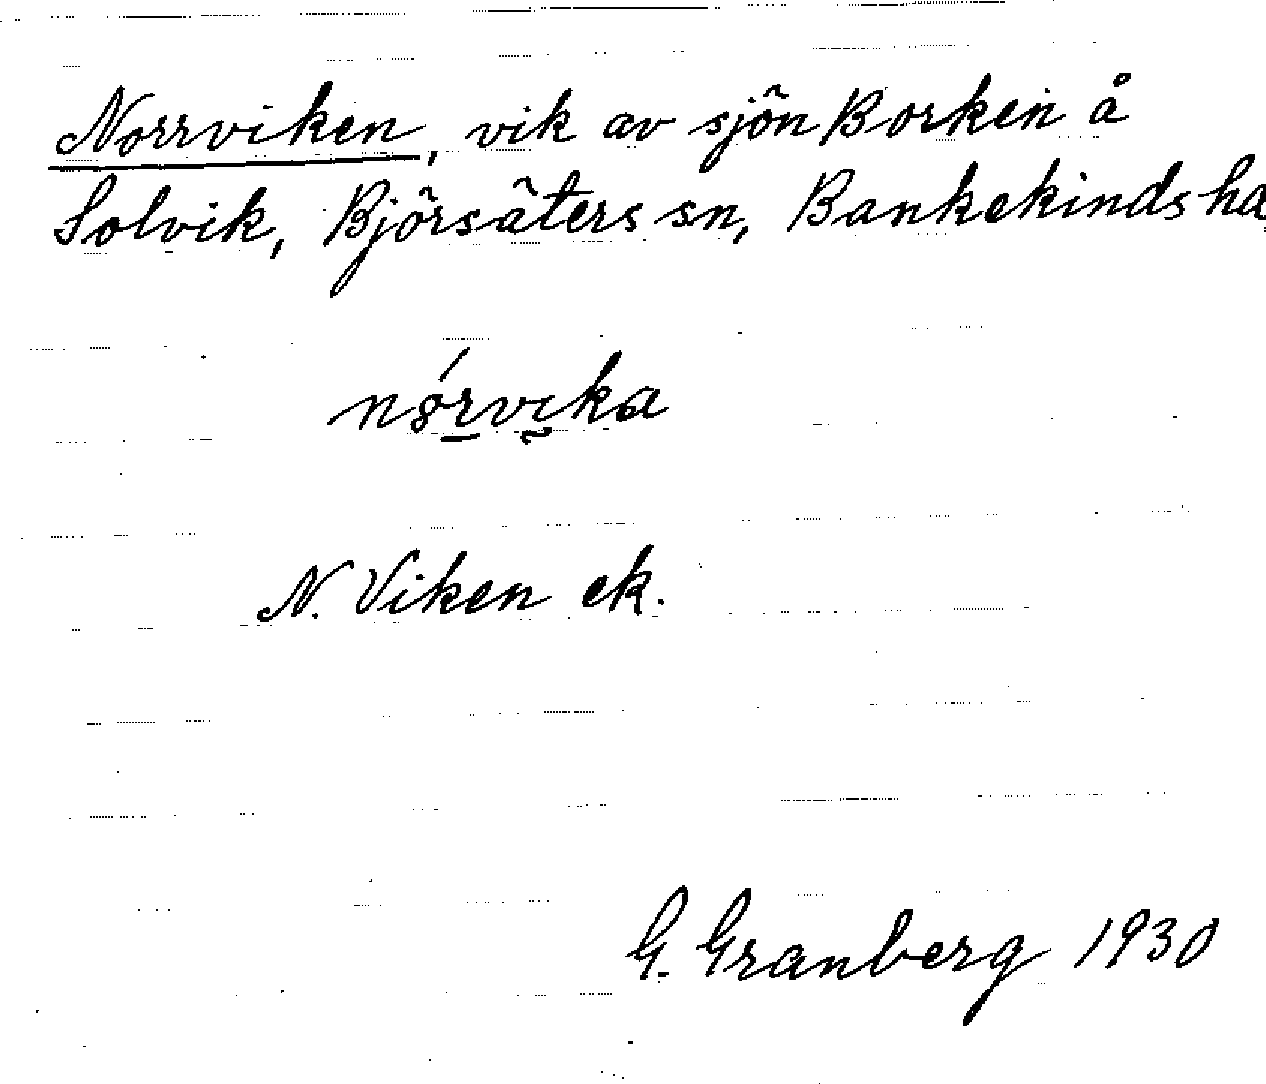 Norrviken, vik av sjön Borken å
Solvik, Björsäters sn, Bankekinds hd
nórvika
N. Viken ek.
G. Granberg 1930